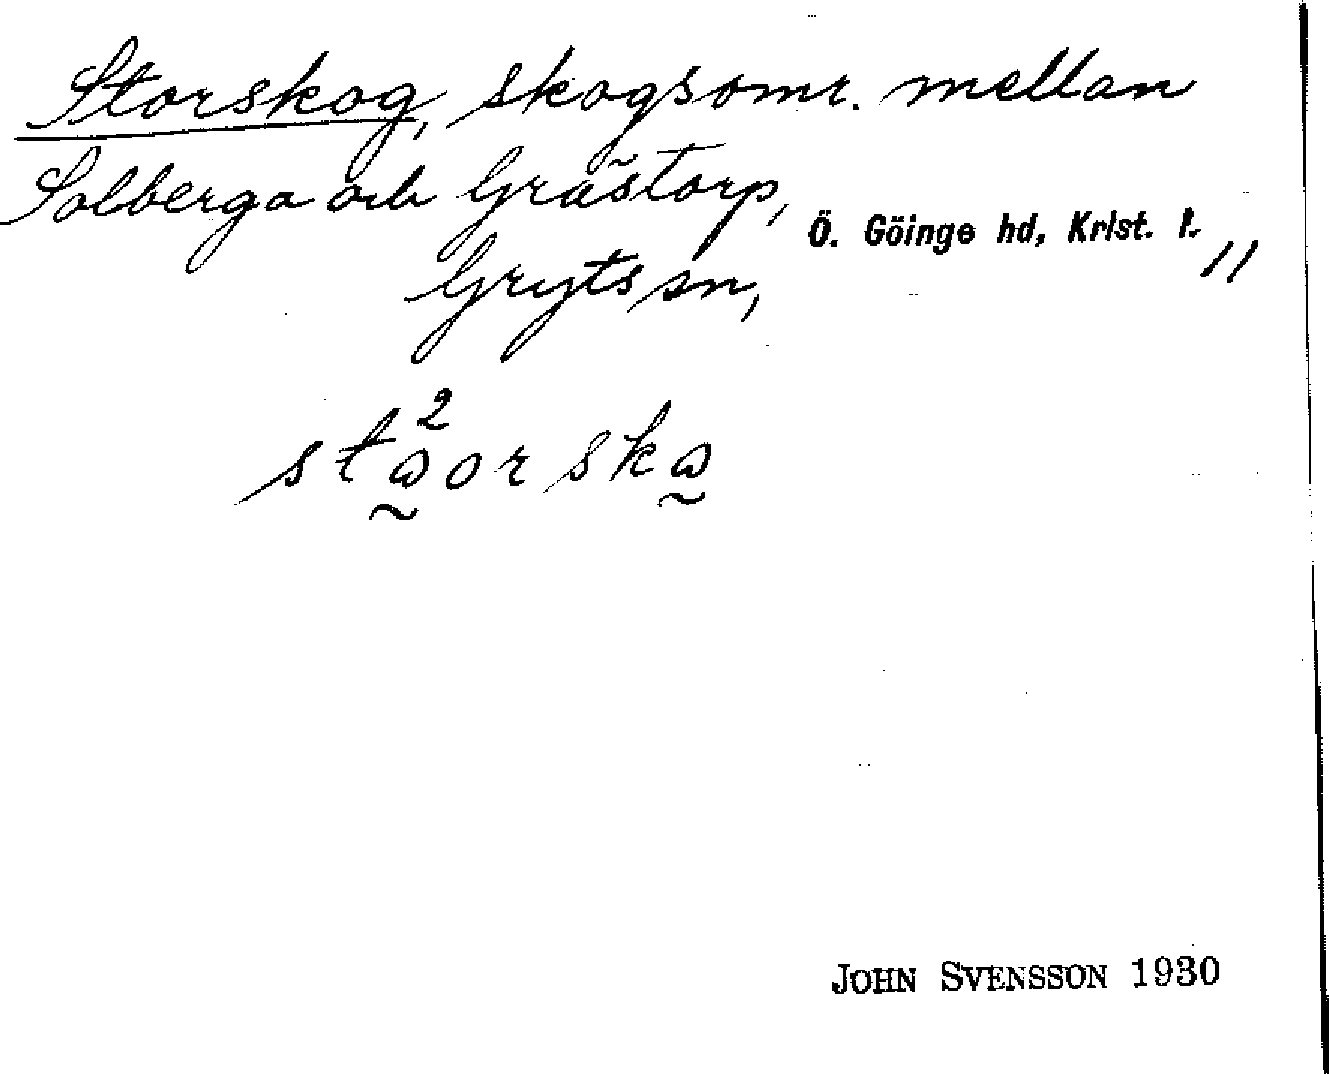 Storskog, skogsomr. mellan
Solberga och Grästorp,
Ö. Göinge hd, Krist. l. 11
Gryts sn,
JOHN SVENSSON 1930